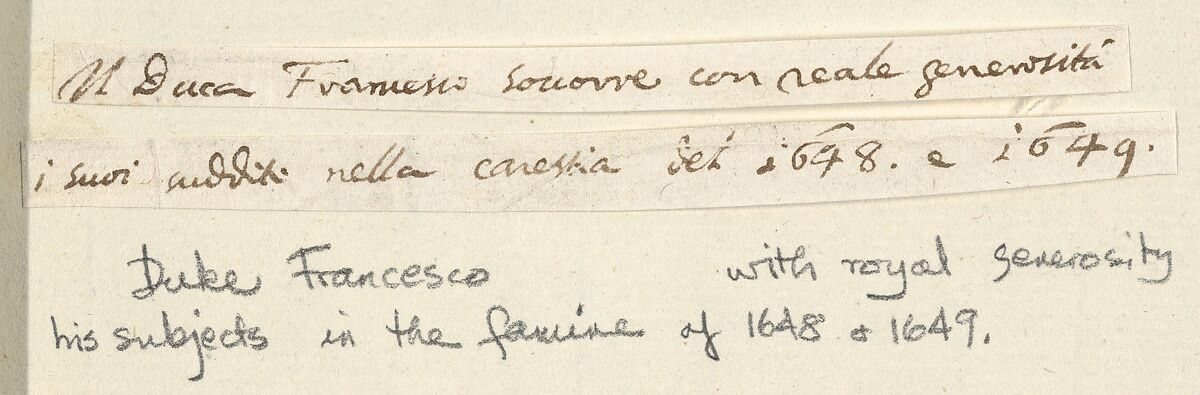 Il Duca Francesco soccorre con reale generosità
i suoi sudditi nella carestia del 1648. e 1649.
Duke Francesco with royal generosity
his subjects in the famine of 1648 & 1649.